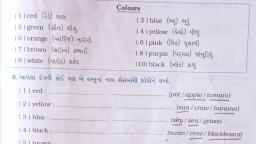 Colours
(1) red (રેડ) લાલ (2) blue (બ્લૂ) ભૂરું
(3) green (ગ્રીન) લીલું (4) yellow (યેલો) પીળું
(5) orange (ઓરેંજ) નારંગી (6) pink (પિંક) ગુલાબી
(7) brown (બ્રાઉન) કથ્થાઈ (8) purple (પરપલ) જાંબુડિયું
(9) white (વાઇટ) સફેદ (10) black (બ્લેક) કાળું
6. આપેલા રંગની કોઈ પણ બે વસ્તુનાં નામ કૌંસમાંથી શોધીને લખો.
(1) red : (pot / apple / tomato)
(2) yellow : (sun / crow / banana)
(3) blue : (sky / sea / grass)
(4) black : (swan / crow / blackboard)
(5) brown :